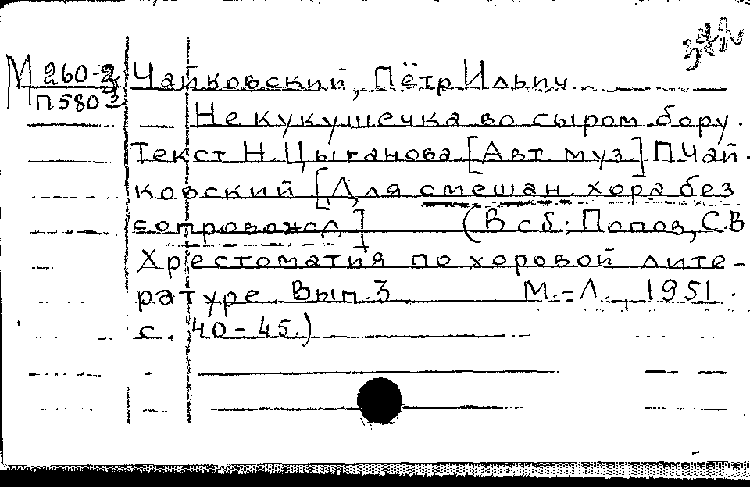 М 260-2 Чайковский, Пётр Ильич
П580
Не кукушечка во сыром бору.
Текст Н. Цыганова [Авт муз] П. Чай-
ковский [Для смешан. хора без
сопровожд.] (В сб.: Попов, С.В
Хрестоматия по хоровой лите-
ратуре Вып. 3 М.-Л., 1951.
с. 40-45.)